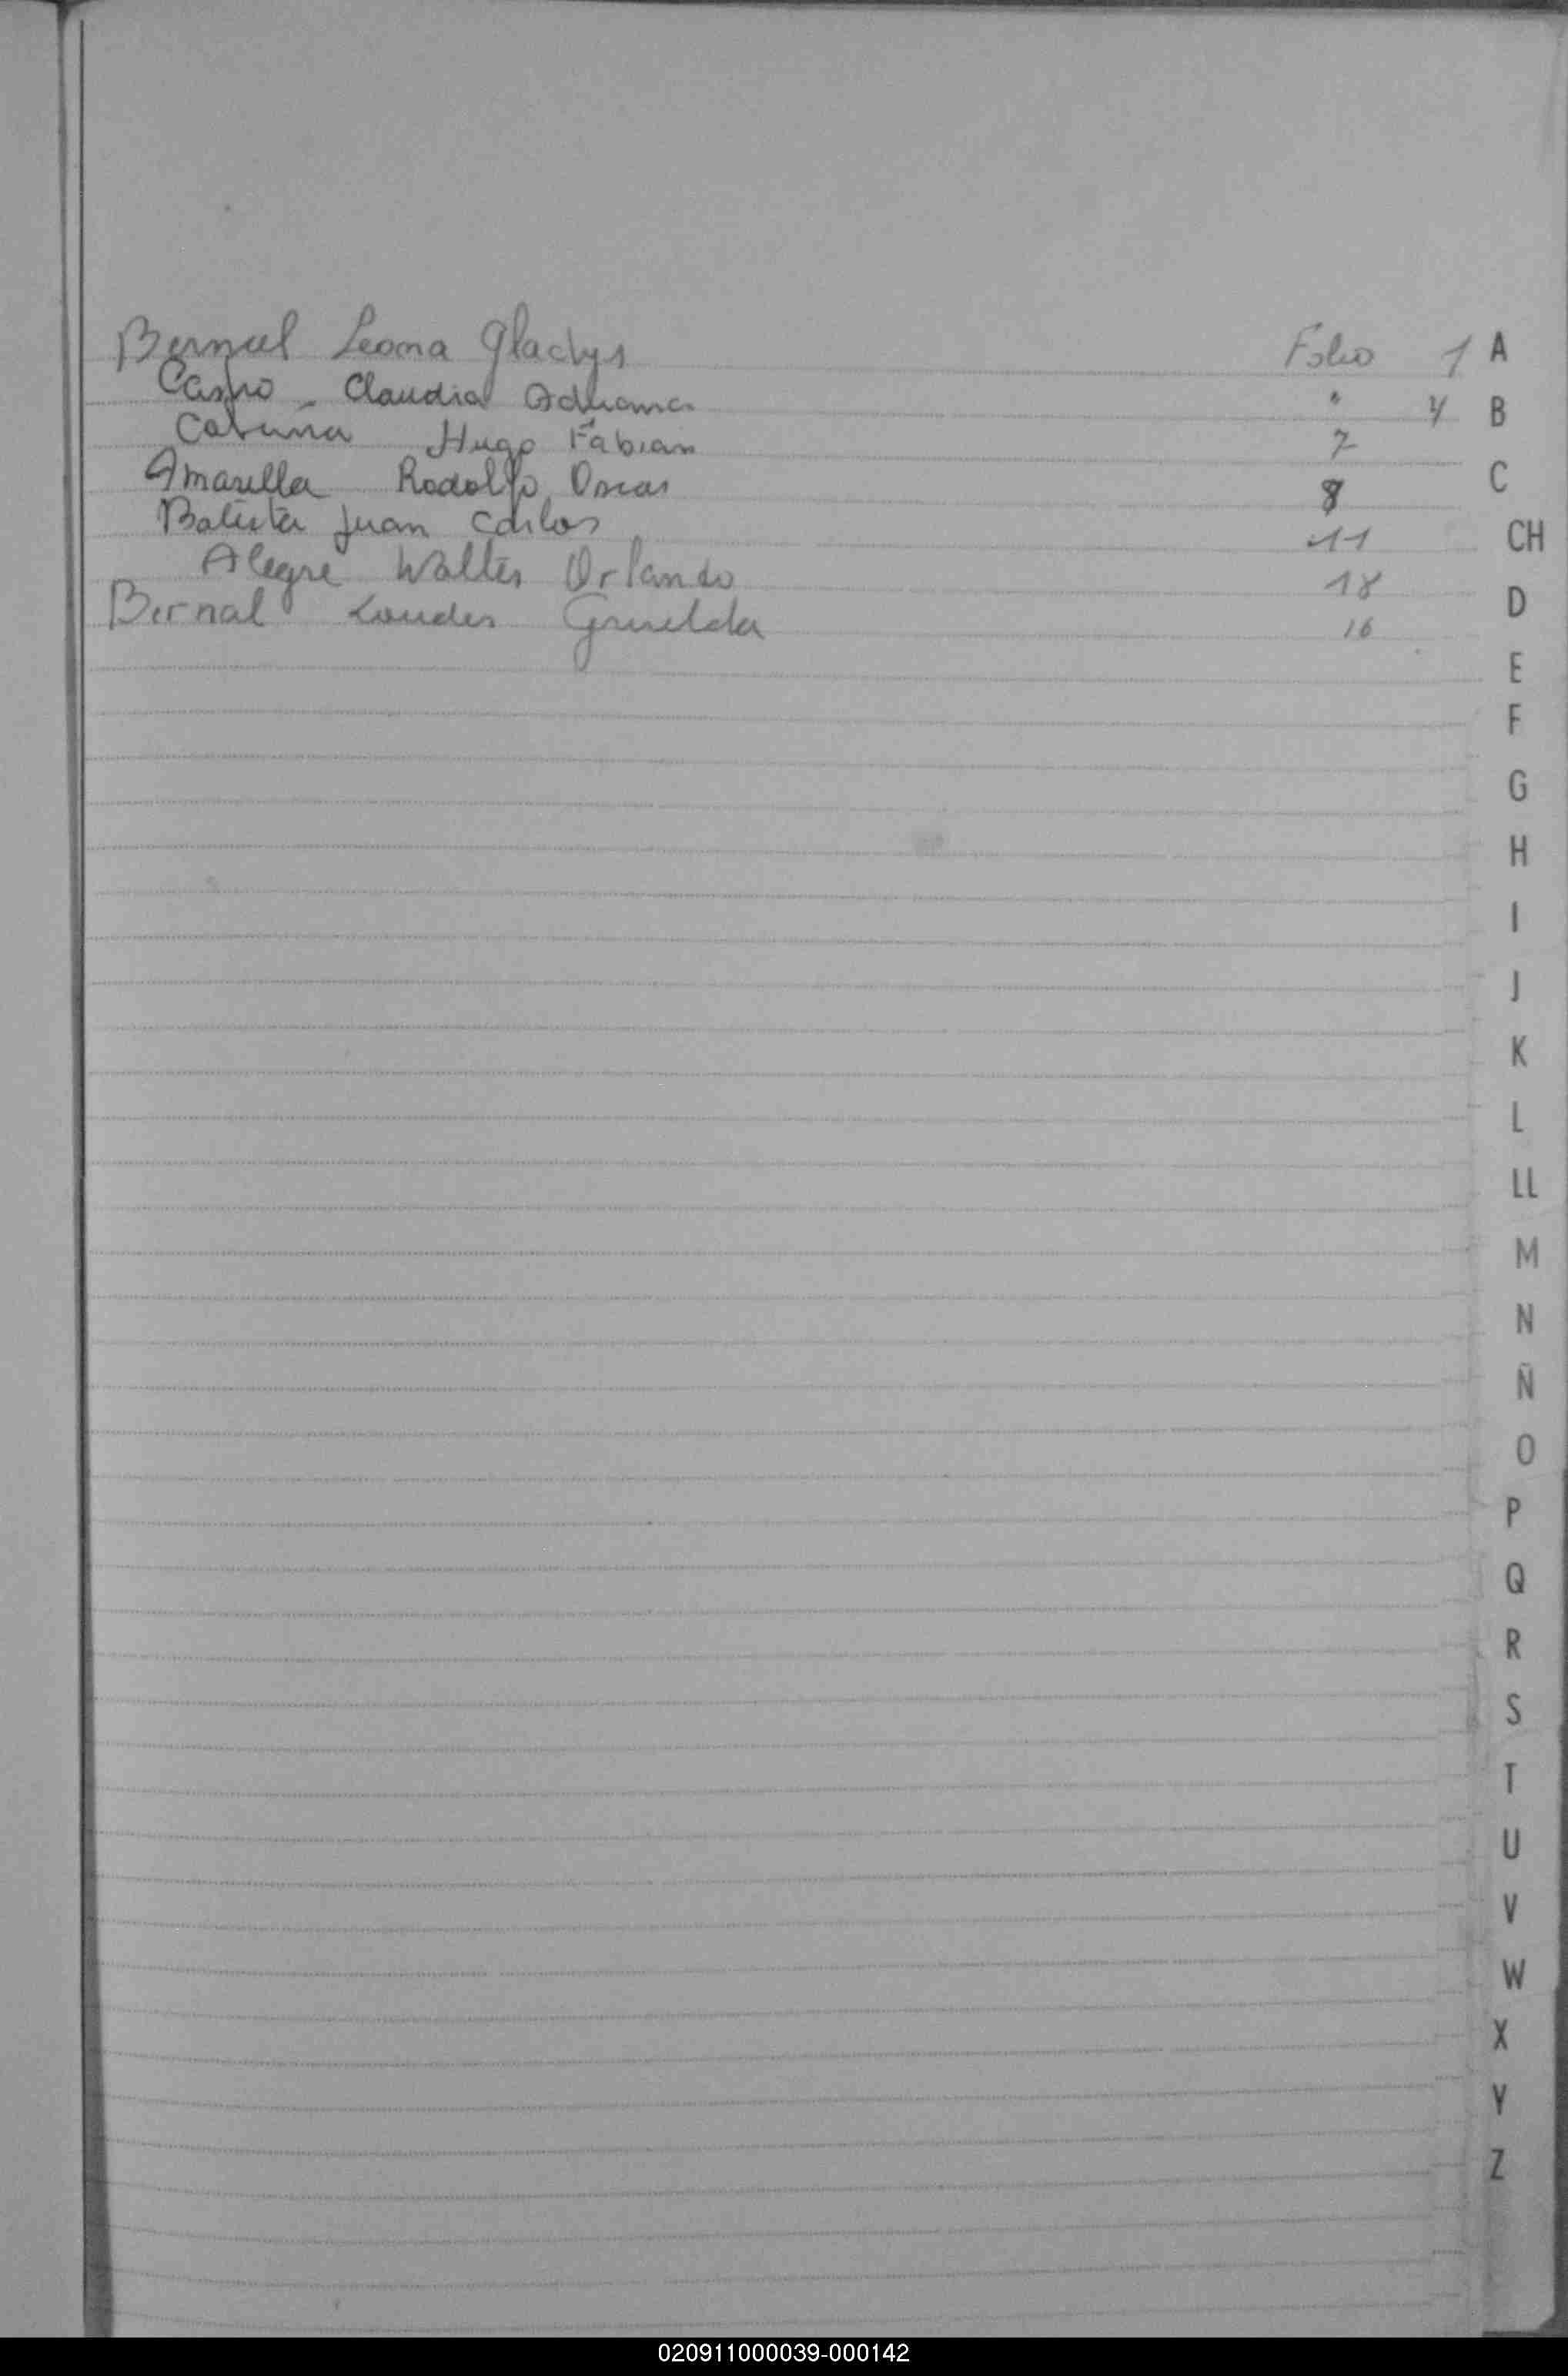 Bernal Leona Gladys Folio 1
Castro - Claudia Adriana " 4
Hugo Fabian 7
Amarilla Rodolfo Oscar 8
Batista Juan Carlos 11
Alegre Walter Orlando 18
Bernal Loudes Griselda 16
A
B
C
CH
D
E
F
G
H
I
J
K
L
LL
M
N
Ñ
O
P
Q
R
S
T
U
V
W
X
Y
Z
020911000039-000142